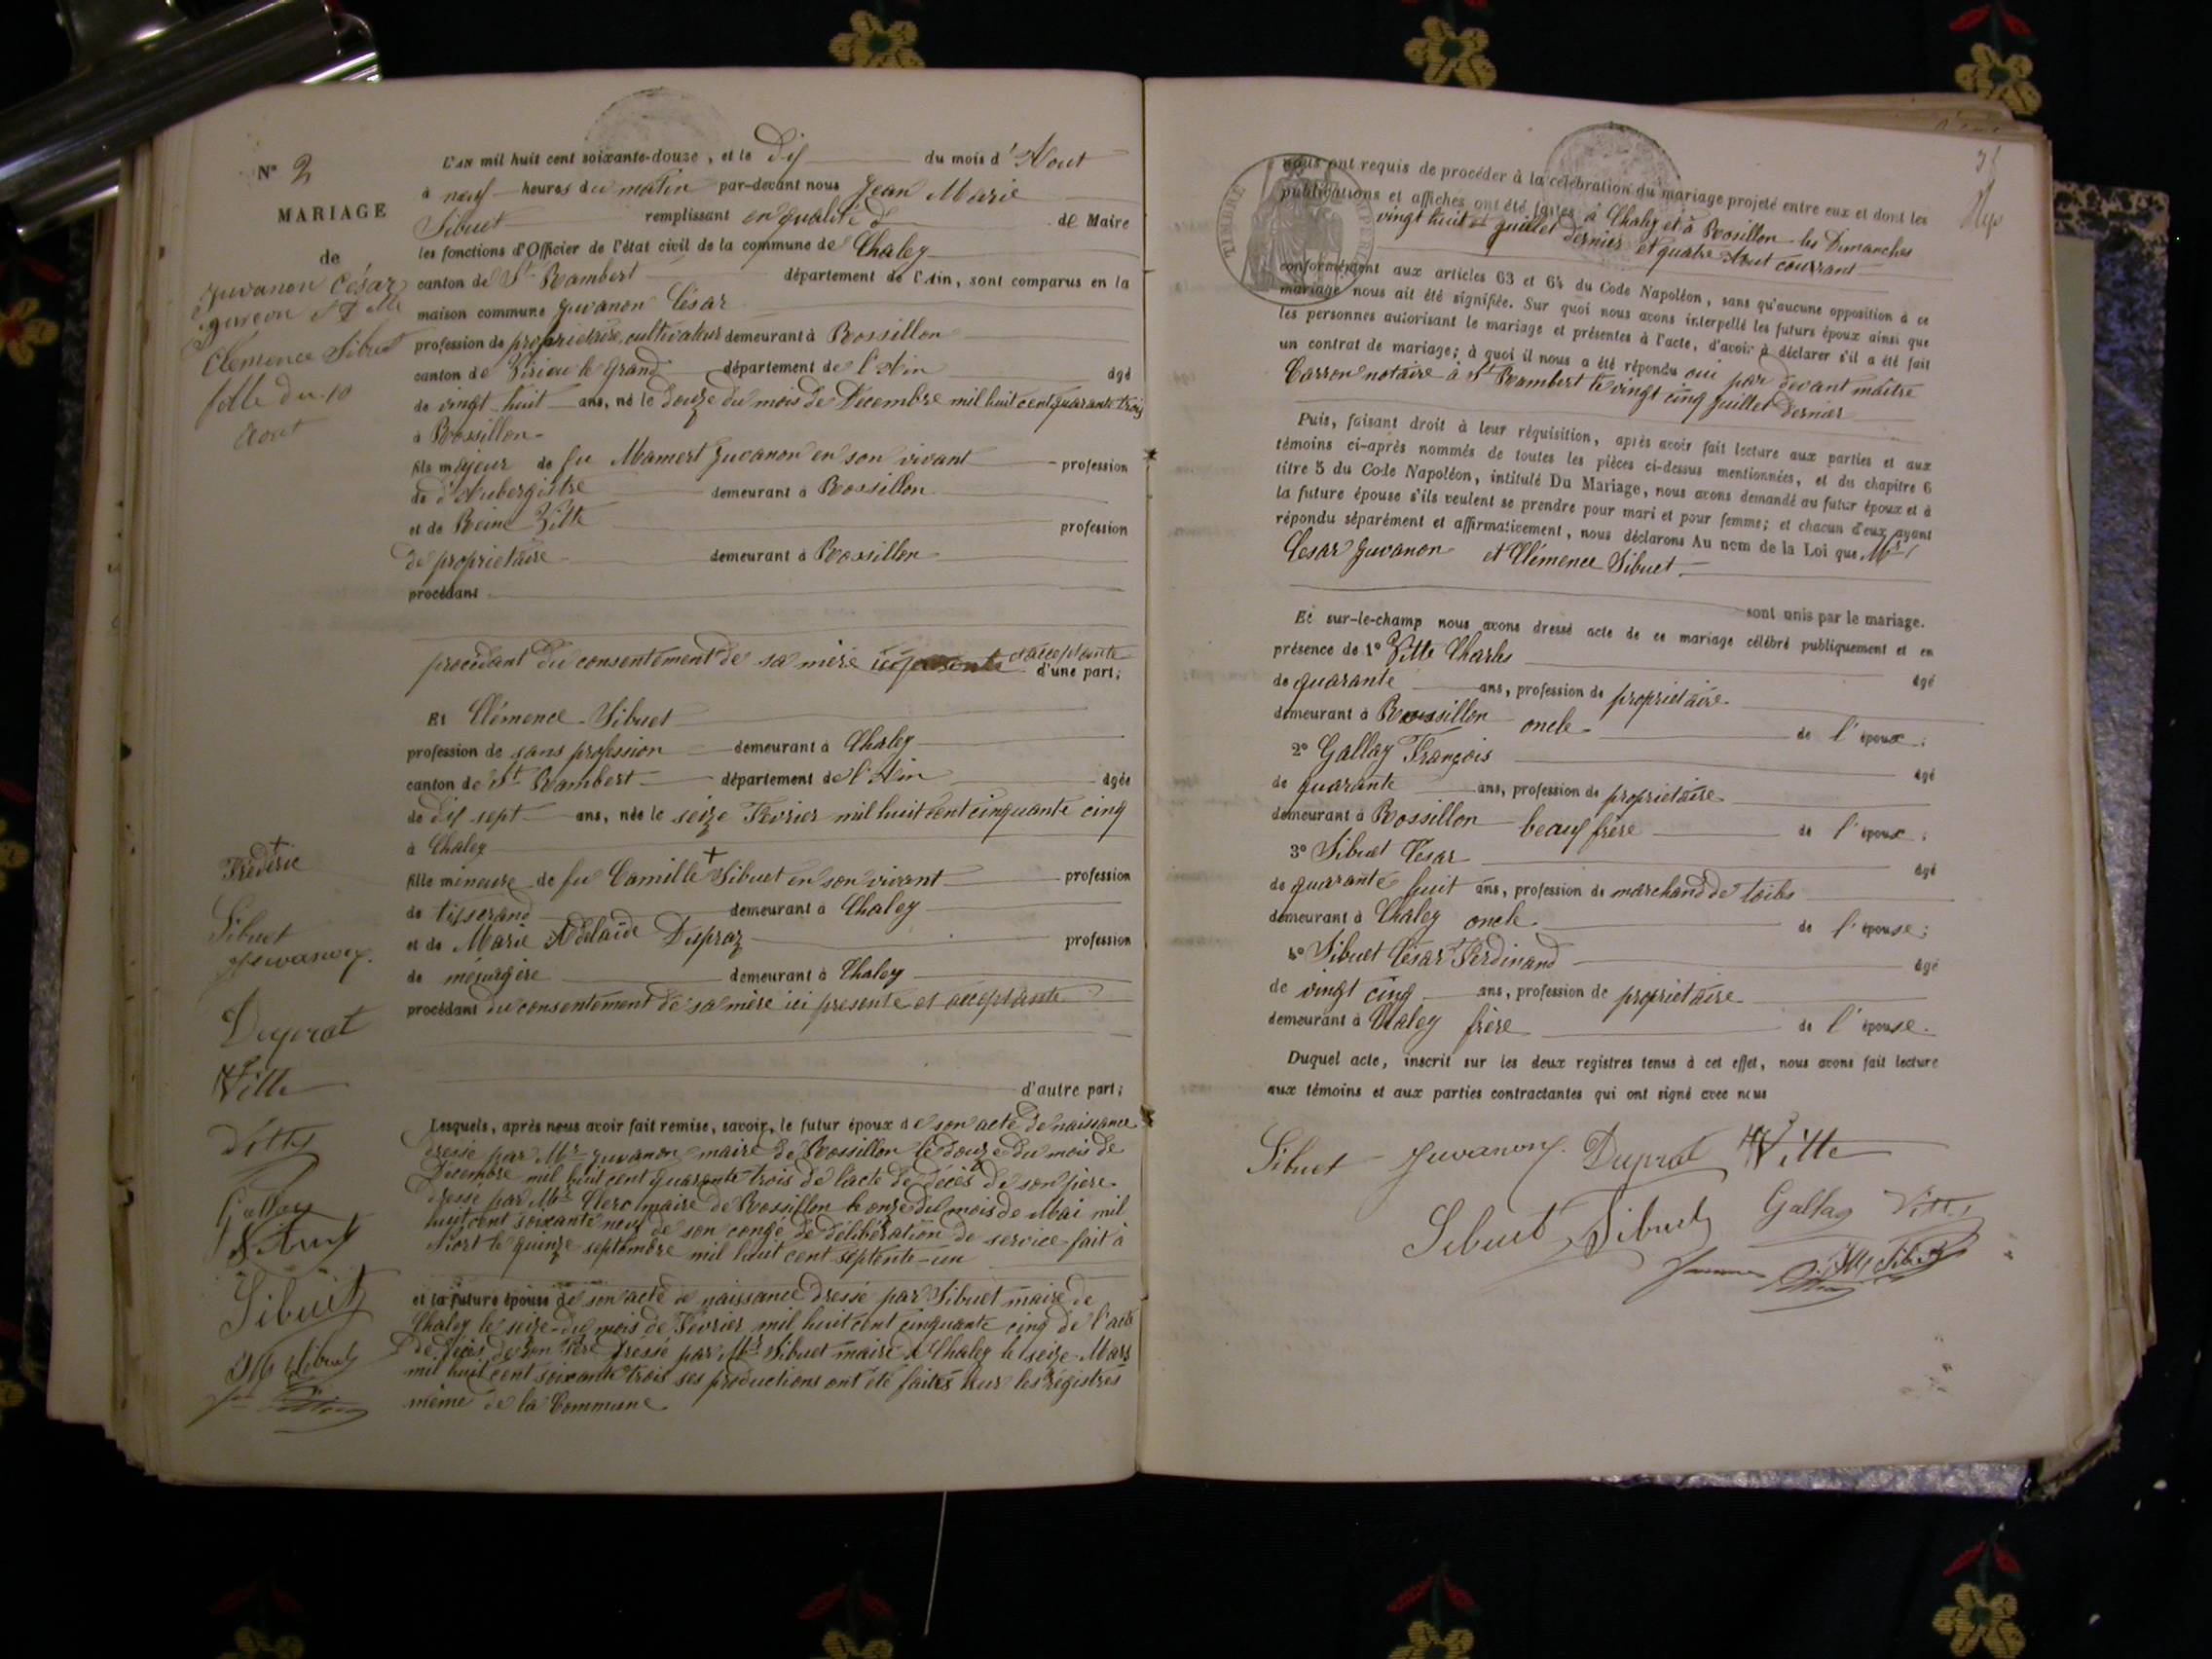 N° 2
MARIAGE
de
Juvanon César
garçon et Dlle
Clémence Sibuet
fille du 10
Aout
L'an mil huit cent soixante-douze, et le Dix du mois d'Aout
à neuf heures du matin par-devant nous Jean Marie
Sibuet remplissant en qualité de Maire
les fonctions d'Officier de l'état civil de la commune de Chaley
canton de St Rambert département de l'Ain, sont comparus en la
maison commune Juvanon César
profession de propriétaire cultivateur demeurant à Rossillon
canton de Virieu le Grand département de l'Ain âgé
de vingt huit ans, né le douze du mois de Décembre mil huit cent quarante trois
à Rossillon
fils majeur de feu Mamert Juvanon en son vivant profession
de d'Aubergiste demeurant à Rossillon
et de Reine Vitte profession
de propriétaire demeurant à Rossillon
procédant
procédant du consentement de sa mère ici présente et acceptante
d'une part;
Et Clémence Sibuet
profession de sans profession demeurant à Chaley
canton de St Rambert département de l'Ain âgée
de dix sept ans, née le seize Fevrier mil huit cent cinquante cinq
à Chaley
fille mineure de feu Camille + Sibuet en son vivant profession
de tisserand demeurant à Chaley
et de Marie Adelaïde Dupraz profession
de ménagère demeurant à Chaley
procédant du consentement de sa mère ici présente et acceptante
d'autre part;
Lesquels, après nous avoir fait remise, savoir, le futur époux de son acte de naissance
dressé par Mr Juvanon maire de Rossillon le douze du mois de
Décembre mil huit cent quarante trois de l'acte de décès de son père
dressé par Mr Clerc maire de Rossillon le onze du mois de Mai mil
huit cent soixante neuf de son congé de délibération de service fait à
Niort le quinze septembre mil huit cent septente-un
et la future épouse de son acte de naissance dressé par Sibuet maire de
Chaley le seize du mois de Fevrier mil huit cent cinquante cinq de l'acte
de décès de son Père dressé par Mr Sibuet maire de Chaley le seize Mars
mil huit cent soixante trois ses productions ont été faites sur les régistres
même de la Commune
+
Frédéric
Sibuet
Juvanon
Duprat
Vitte
Vitte
Gallay
Sibuet
Sibuet
JM Sibuet
nous ont requis de procéder à la célébration du mariage projeté entre eux et dont les
publications et affiches ont été faites à Chaley et à Rossillon les Dimanches
vingt huit juillet dernier et quatre Aout courrant
conformément aux articles 63 et 64 du Code Napoléon, sans qu'aucune opposition à ce
mariage nous ait été signifiée. Sur quoi nous avons interpellé les futurs époux ainsi que
les personnes autorisant le mariage et présentes à l'acte, d'avoir à déclarer s'il a été fait
un contrat de mariage; à quoi il nous a été répondu oui par devant maître
Carron notaire à St Rambert le vingt cinq juillet dernier
Puis, faisant droit à leur réquisition, après avoir fait lecture aux parties et aux
témoins ci-après nommés de toutes les pièces ci-dessus mentionnées, et du chapitre 6
titre 5 du Code Napoléon, intitulé Du Mariage, nous avons demandé au futur époux et à
la future épouse s'ils veulent se prendre pour mari et pour femme; et chacun d'eux ayant
répondu séparément et affirmativement, nous déclarons Au nom de la Loi que Mr
César Juvanon et Clémence Sibuet
sont unis par le mariage.
Et sur-le-champ nous avons dressé acte de ce mariage célébré publiquement et en
présence de 1° Vitte Charles âgé
de quarante ans, profession de propriétaire
demeurant à Rossillon oncle de l'époux;
2° Gallay François âgé
de quarante ans, profession de propriétaire
demeurant à Rossillon beauf frère de l'époux;
3° Sibuet César âgé
de quarante huit ans, profession de marchand de toiles
demeurant à Chaley oncle de l'épouse;
4° Sibuet César Ferdinand âgé
de vingt cinq ans, profession de propriétaire
demeurant à Chaley frère de l'épouse.
Duquel acte, inscrit sur les deux registres tenus à cet effet, nous avons fait lecture
aux témoins et aux parties contractantes qui ont signé avec nous
Sibuet Juvanon Duprat Vitte
Sibuet Sibuet Gallay Vitte
JM Sibuet
TIMBRE